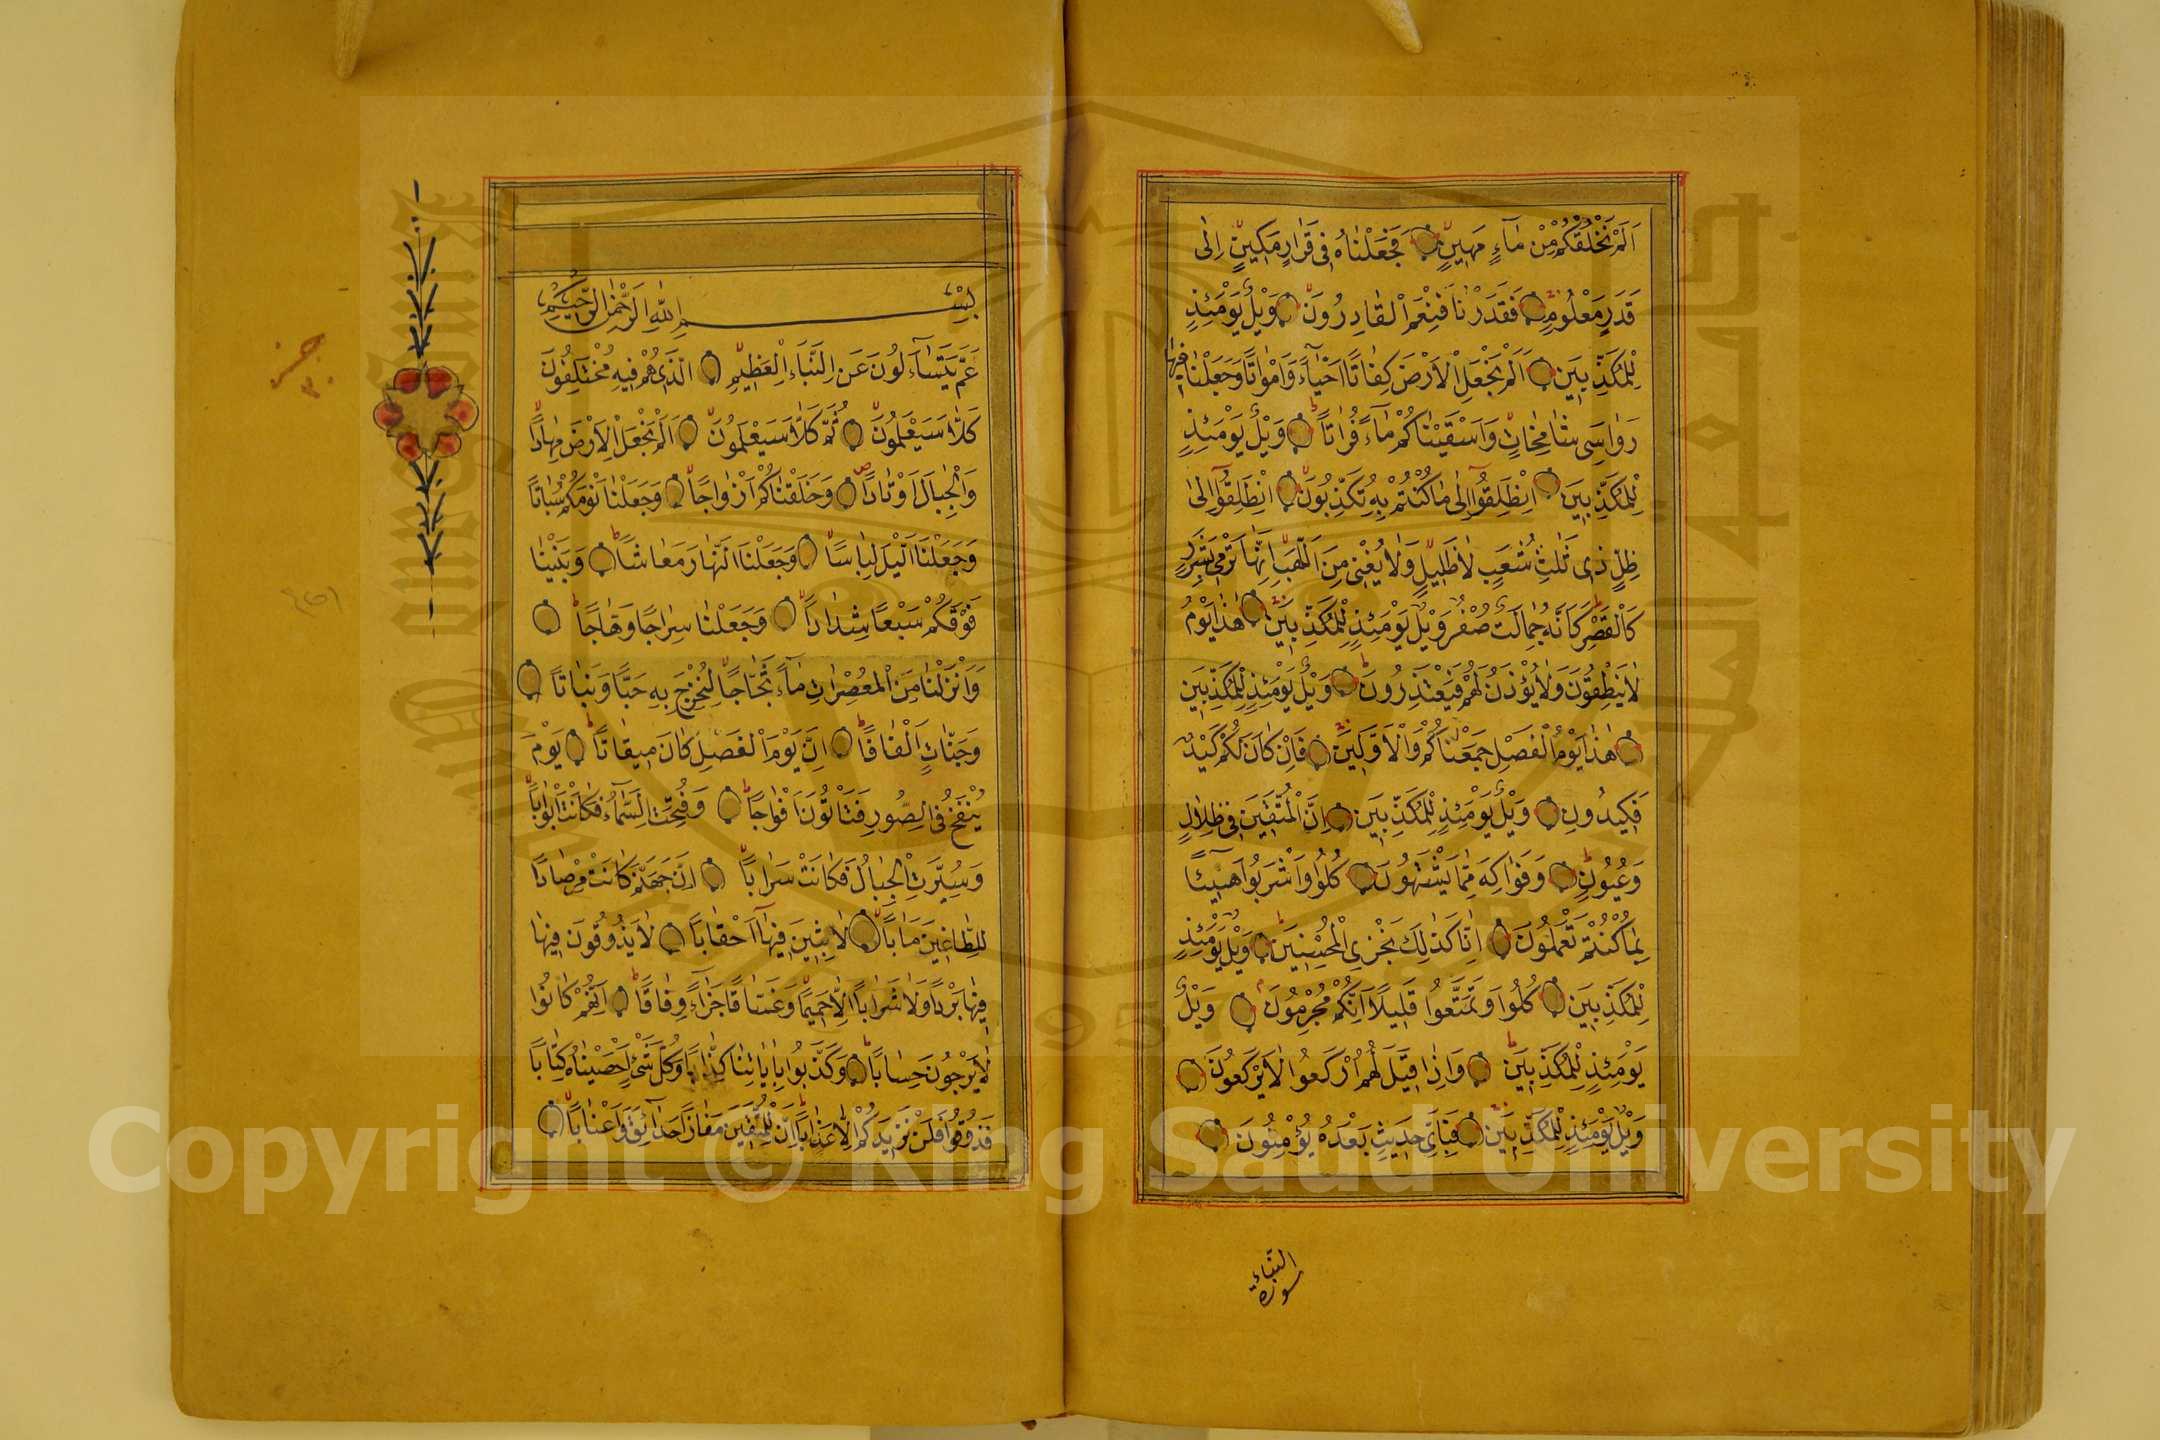 اَلَمْ نَخْلُقْكُمْ مِنْ مَآءٍ مَهينٍ فَجَعَلْنَاهُ فى قَرَارٍ مَكينٍ اِلٰى
قَدَرٍ مَعْلُومٍ فَقَدَرْنَا فَنِعْمَ الْقَادِرُونَ وَيْلٌ يَوْمَئِذٍ
لِلْمُكَذِّبينَ اَلَمْ نَجْعَلِ الْاَرْضَ كِفَاتًا اَحْيَآءً وَاَمْوَاتًا وَجَعَلْنَا فيهَا
رَوَاسِىَ شَامِخَاتٍ وَاَسْقَيْنَاكُمْ مَآءً فُرَاتًا وَيْلٌ يَوْمَئِذٍ
لِلْمُكَذِّبينَ اِنْطَلِقُوٓا اِلٰى مَا كُنْتُمْ بِه تُكَذِّبُونَ اِنْطَلِقُوٓا اِلٰى
ظِلٍّ ذى ثَلٰثِ شُعَبٍ لَا ظَليلٍ وَلَا يُغْنى مِنَ اللَّهَبِ اِنَّهَا تَرْمى بِشَرَرٍ
كَالْقَصْرِ كَاَنَّهُ جِمَالَتٌ صُفْرٌ وَيْلٌ يَوْمَئِذٍ لِلْمُكَذِّبينَ هٰذَا يَوْمُ
لَا يَنْطِقُونَ وَلَا يُؤْذَنُ لَهُمْ فَيَعْتَذِرُونَ وَيْلٌ يَوْمَئِذٍ لِلْمُكَذِّبينَ
هٰذَا يَوْمُ الْفَصْلِ جَمَعْنَاكُمْ وَالْاَوَّلينَ فَاِنْ كَانَ لَكُمْ كَيْدٌ
فَكيدُونِ وَيْلٌ يَوْمَئِذٍ لِلْمُكَذِّبينَ اِنَّ الْمُتَّقينَ فى ظِلَالٍ
وَعُيُونٍ وَفَوَاكِهَ مِمَّا يَشْتَهُونَ كُلُوا وَاشْرَبُوا هَنيئًا
بِمَا كُنْتُمْ تَعْمَلُونَ اِنَّا كَذٰلِكَ نَجْزِى الْمُحْسِنينَ وَيْلٌ يَوْمَئِذٍ
لِلْمُكَذِّبينَ كُلُوا وَتَمَتَّعُوا قَليلًا اِنَّكُمْ مُجْرِمُونَ وَيْلٌ
يَوْمَئِذٍ لِلْمُكَذِّبينَ وَاِذَا قيلَ لَهُمُ ارْكَعُوا لَا يَرْكَعُونَ
وَيْلٌ يَوْمَئِذٍ لِلْمُكَذِّبينَ فَبِاَىِّ حَديثٍ بَعْدَهُ يُؤْمِنُونَ
سورة
النبأ
بِسْمِ اللّٰهِ الرَّحْمٰنِ الرَّحيمِ
عَمَّ يَتَسَآءَلُونَ عَنِ النَّبَاِ الْعَظيمِ الَّذى هُمْ فيهِ مُخْتَلِفُونَ
كَلَّا سَيَعْلَمُونَ ثُمَّ كَلَّا سَيَعْلَمُونَ اَلَمْ نَجْعَلِ الْاَرْضَ مِهَادًا
وَالْجِبَالَ اَوْتَادًا وَخَلَقْنَاكُمْ اَزْوَاجًا وَجَعَلْنَا نَوْمَكُمْ سُبَاتًا
وَجَعَلْنَا الَّيْلَ لِبَاسًا وَجَعَلْنَا النَّهَارَ مَعَاشًا وَبَنَيْنَا
فَوْقَكُمْ سَبْعًا شِدَادًا وَجَعَلْنَا سِرَاجًا وَهَّاجًا
وَاَنْزَلْنَا مِنَ الْمُعْصِرَاتِ مَآءً ثَجَّاجًا لِنُخْرِجَ بِه حَبًّا وَنَبَاتًا
وَجَنَّاتٍ اَلْفَافًا اِنَّ يَوْمَ الْفَصْلِ كَانَ ميقَاتًا يَوْمَ
يُنْفَخُ فِى الصُّورِ فَتَاْتُونَ اَفْوَاجًا وَفُتِحَتِ السَّمَآءُ فَكَانَتْ اَبْوَابًا
وَسُيِّرَتِ الْجِبَالُ فَكَانَتْ سَرَابًا اِنَّ جَهَنَّمَ كَانَتْ مِرْصَادًا
لِلطَّاغينَ مَاٰبًا لَابِثينَ فيهَآ اَحْقَابًا لَا يَذُوقُونَ فيهَا
فيهَا بَرْدًا وَلَا شَرَابًا اِلَّا حَميمًا وَغَسَّاقًا جَزَآءً وِفَاقًا اِنَّهُمْ كَانُوا
لَا يَرْجُونَ حِسَابًا وَكَذَّبُوا بِاٰيَاتِنَا كِذَّابًا وَكُلَّ شَىْءٍ اَحْصَيْنَاهُ كِتَابًا
فَذُوقُوا فَلَنْ نَزيدَكُمْ اِلَّا عَذَابًا اِنَّ لِلْمُتَّقينَ مَفَازًا حَدَآئِقَ وَاَعْنَابًا
جزء
٣٠
Copyright © King Saud University
1957